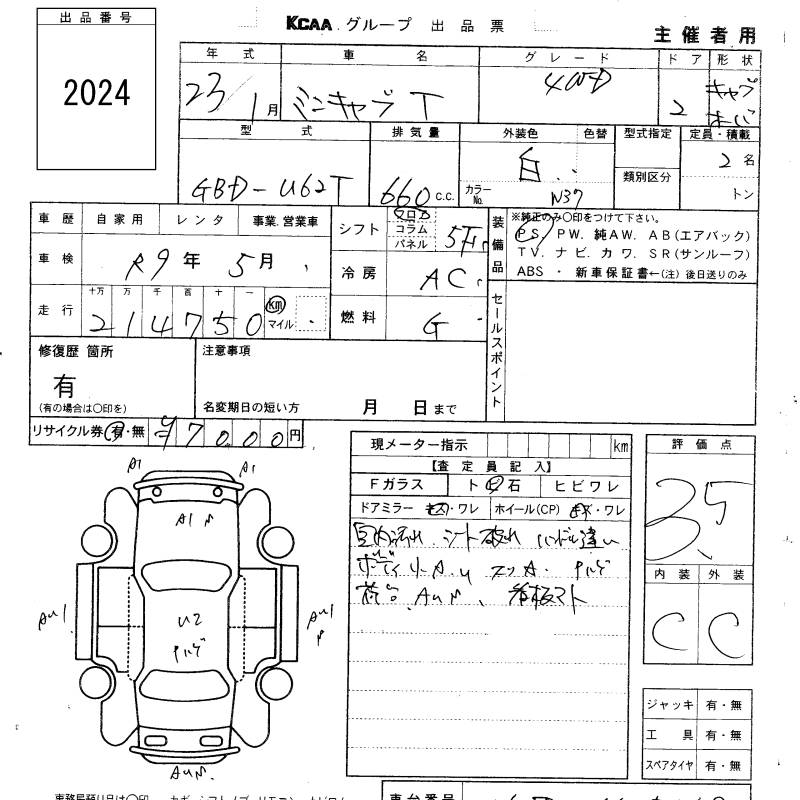 出品番号
2024
KCAA グループ 出品票
主催者用
年式 車名 グレード ドア 形状
23/1月 ミニキャブT 4WD 2 キャブ
型式 排気量 外装色 色替 型式指定 定員・積載
GBD-U62T 660 c.c. 白 2名
カラーNo. N37 類別区分 トン
車歴 自家用 レンタ 事業.営業車
車検 R9年 5月
走行 十万 万 千 百 十 一
214750 km マイル
シフト フロア コラム パネル 5F
冷房 AC
燃料 G
装備品
※純正のみ〇印をつけて下さい。
PS. PW. 純AW. AB(エアバック)
TV. ナビ. カワ. SR(サンルーフ)
ABS ・ 新車保証書←(注) 後日送りのみ
セールスポイント
修復歴 箇所
有
(有の場合は〇印を)
注意事項
名変期日の短い方 月 日まで
リサイクル券 有・無 ¥7000円
現メーター指示 km
【査定員記入】
Fガラス ト 石 ヒビワレ
ドアミラー キズ・ワレ ホイール(CP) キズ・ワレ
室内汚れ シート破れ ハンドル違い
ボディ
荷台 AUM
評価点
3.5
内装 外装
C C
A1
A1
A1
AU1
AU1
P
U2
AUM
ジャッキ 有・無
工具 有・無
スペアタイヤ 有・無
車台番号